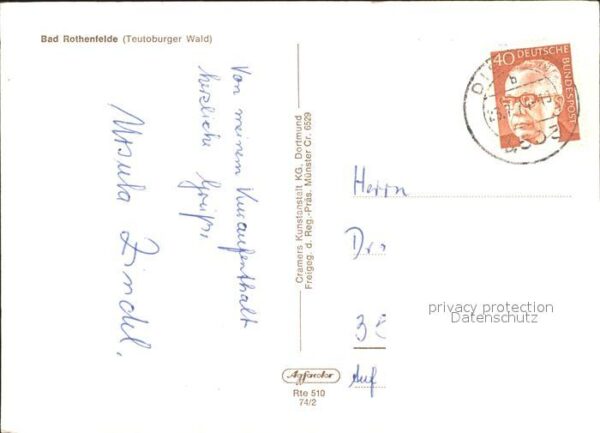 Bad Rothenfelde (Teutoburger Wald)
Von meinem Kuraufenthalt
herzliche Grüße,
Ursula Zindel.
Cramers Kunstanstalt KG. Dortmund
Freigeg. d. Reg.-Präs. Münster Cr. 6529
Agfacolor
Rte 510
74/2
40 DEUTSCHE
BUNDESPOST
Herrn
privacy protection
Datenschutz